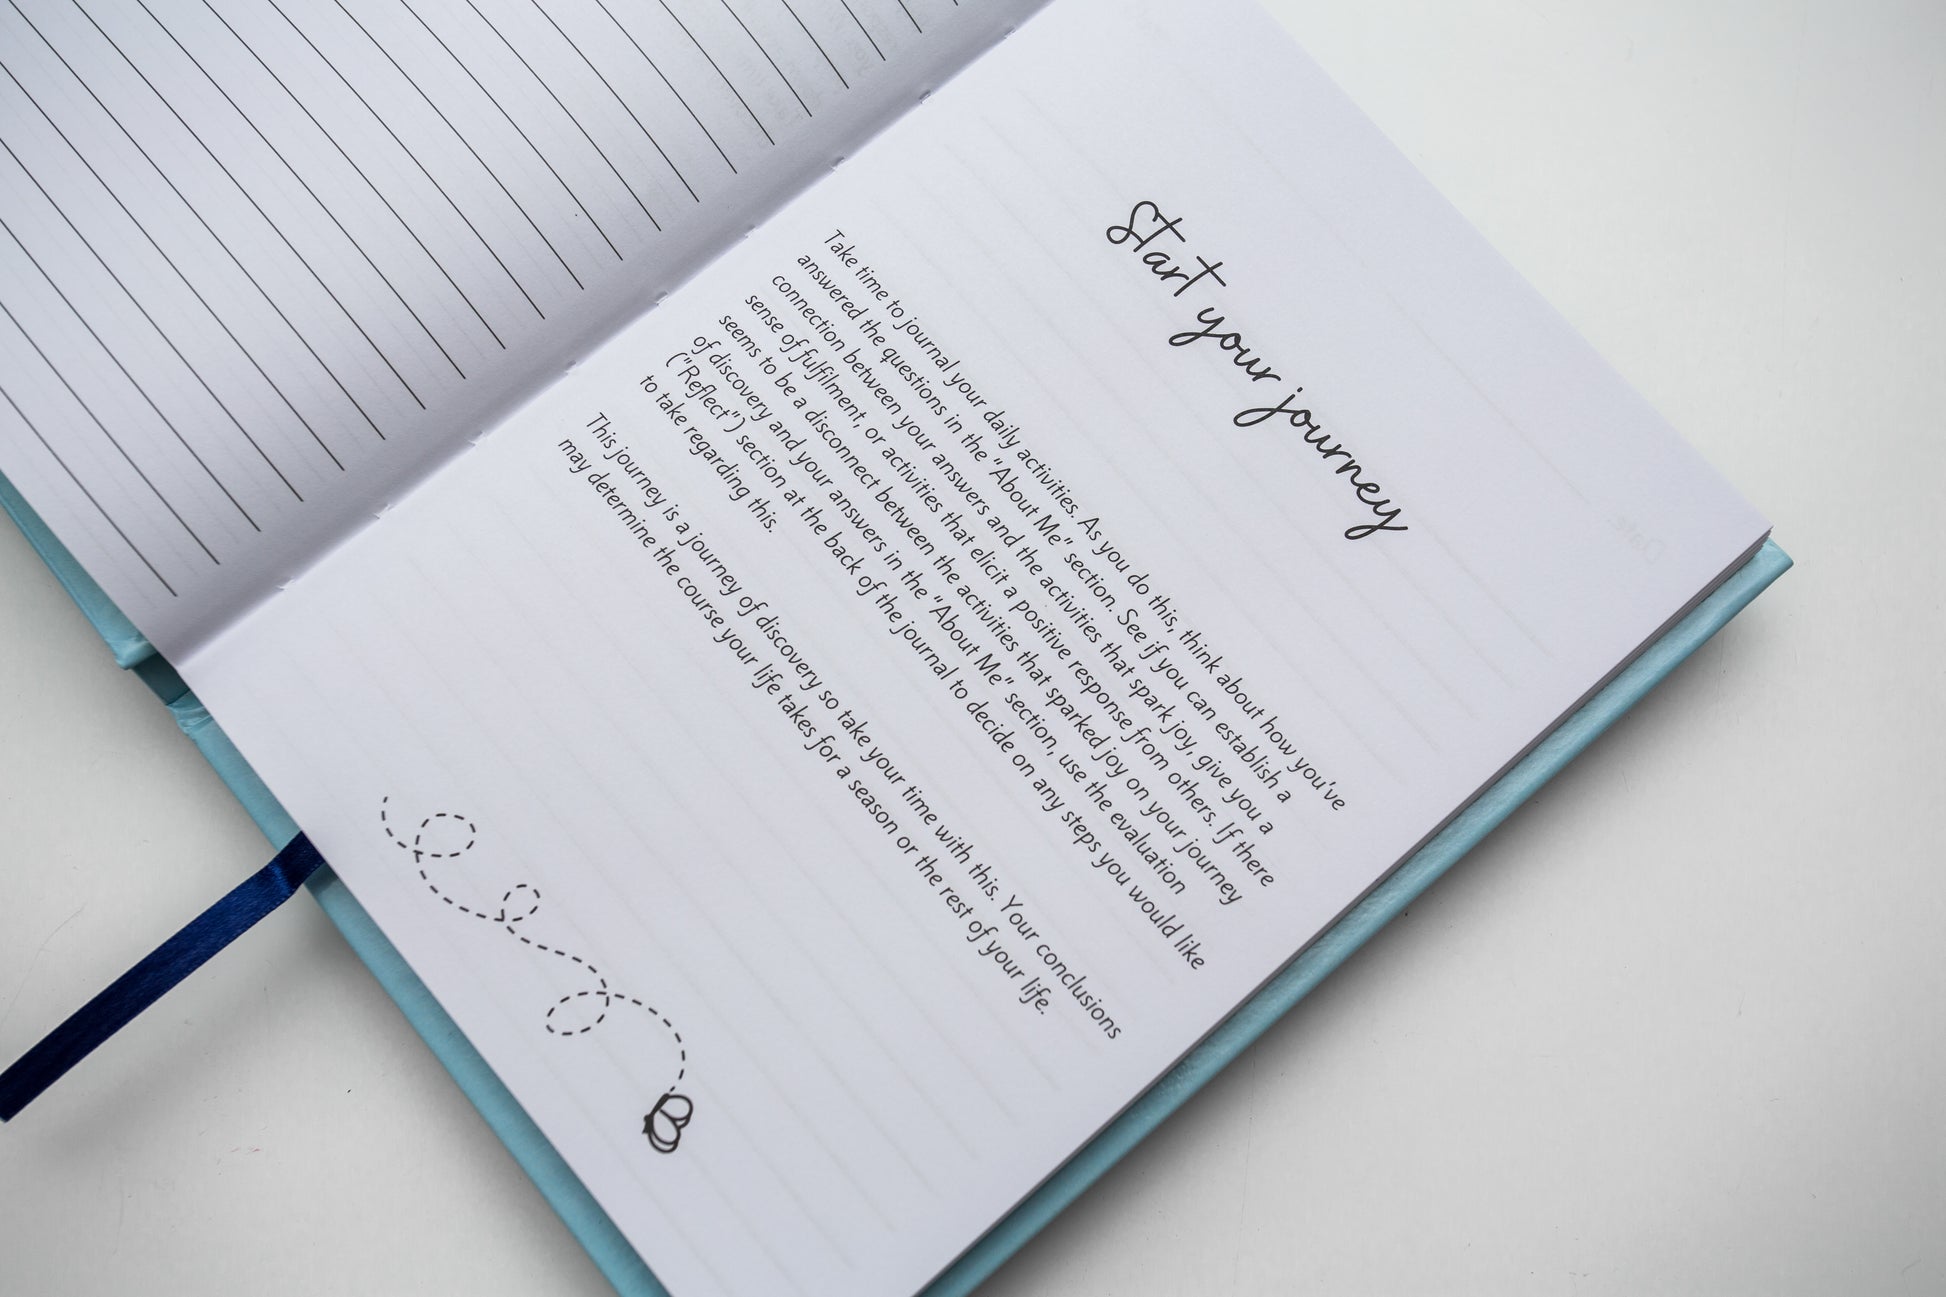 Start your journey
Take time to journal your daily activities. As you do this, think about how you've
answered the questions in the "About Me" section. See if you can establish a
connection between your answers and the activities that spark joy, give you a
sense of fulfilment, or activities that elicit a positive response from others. If there
seems to be a disconnect between the activities that sparked joy on your journey
of discovery and your answers in the "About Me" section, use the evaluation
("Reflect") section at the back of the journal to decide on any steps you would like
to take regarding this.
This journey is a journey of discovery so take your time with this. Your conclusions
may determine the course your life takes for a season or the rest of your life.